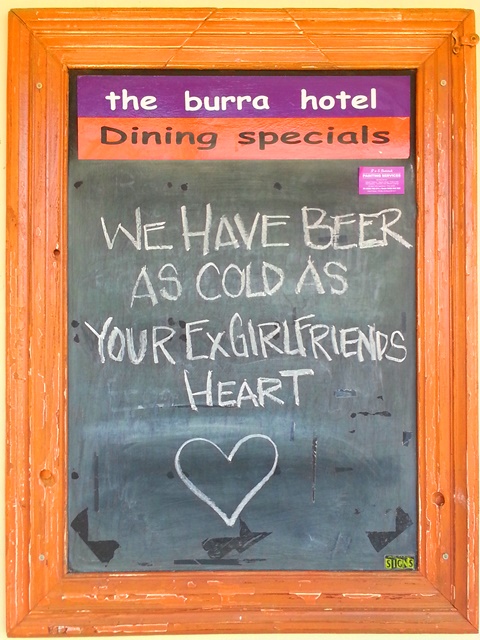 the burra hotel
Dining specials
WE HAVE BEER
AS COLD AS
YOUR EXGIRLFRIENDS
HEART
SIGNS